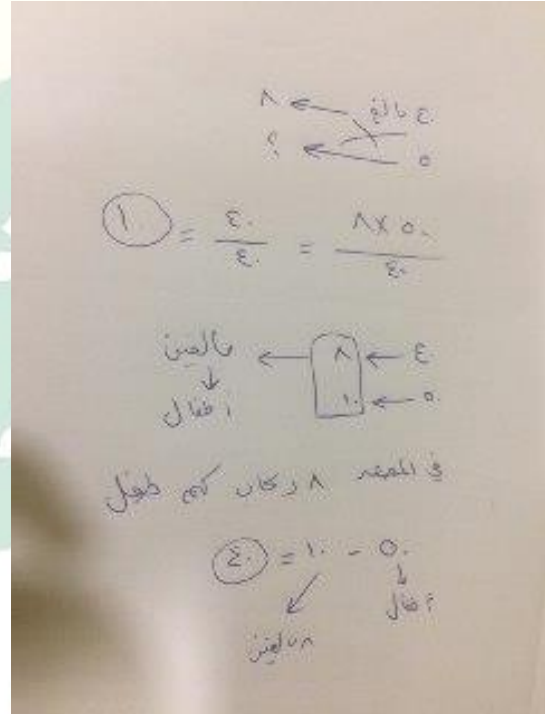 ٤٠ بالغ ← ٨
٥٠ ← ؟
٨ × ٥٠ / ٤٠ = ٤٠ / ٤٠ = ١
٤٠ ← ٨ ← بالغين
٥٠ ← ١٠ ↓ اطفال
في ٨ وكان كم طفل
٥٠ - ١٠ = ٤٠
↓ اطفال
بالغين